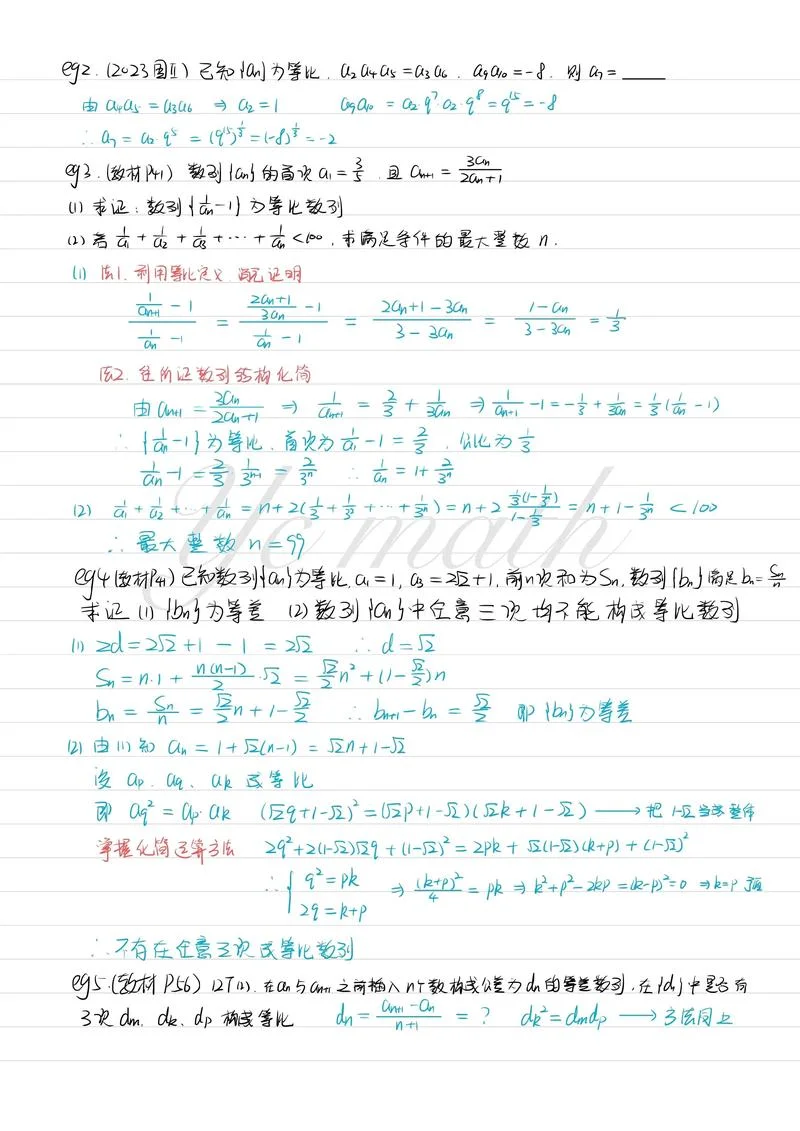 eg2. (2023国Ⅱ) 已知{an}为等比, a₂a₄a₅=a₃a₆, a₉a₁₀=-8, 则 a₇=____
由 a₄a₅=a₃a₆ ⇒ a₂=1  a₉a₁₀ = a₂·q⁷·a₂·q⁸=q¹⁵=-8
∴ a₇ = a₂·q⁵ = (q¹⁵)^(1/3)=(-8)^(1/3)=-2
eg3. (教材P41) 数列{an}的首项 a₁=3/5, 且 an+1 = 3an/(2an+1)
(1) 求证: 数列{1/an-1}为等比数列
(2) 若 1/a₁+1/a₂+1/a₃+…+1/an<100, 求满足条件的最大整数 n.
(1) 法1. 利用等比定义, 证明
(1/an+1 - 1)/(1/an - 1) = ((2an+1)/3an - 1)/(1/an - 1) = (2an+1-3an)/(3-3an) = (1-an)/(3-3an) = 1/3
法2. 往所证数列结构化简
由 an+1 = 3an/(2an+1) ⇒ 1/an+1 = 2/3 + 1/3an ⇒ 1/an+1 -1=-1/3+1/3an=1/3(1/an-1)
∴ {1/an-1}为等比, 首项为 1/a₁-1=2/3, 公比为 1/3
1/an-1=2/3·1/3ⁿ⁻¹=2/3ⁿ ∴ 1/an=1+2/3ⁿ
(2) 1/a₁+1/a₂+…+1/an=n+2(1/3+1/3²+…+1/3ⁿ)=n+2 (1/3(1-1/3ⁿ))/(1-1/3)=n+1-1/3ⁿ <100
∴ 最大整数 n=99
eg4(教材P41)已知数列{an}为等比, a₁=1, a₃=2√2+1, 前n项和为Sn, 数列{bn}满足bn=Sn/n
求证 (1) {bn}为等差 (2) 数列{an}中任意三项均不能构成等比数列
(1) 2d=2√2+1-1=2√2 ∴ d=√2
Sn=n·1+n(n-1)/2·√2=√2/2n²+(1-√2/2)n
bn=Sn/n=√2/2n+1-√2/2 ∴ bn+1-bn=√2/2 即{bn}为等差
(2) 由(1)知 an=1+√2(n-1)=√2n+1-√2
设 ap、aq、ak 成等比
即 aq²=ap·ak (√2q+1-√2)²=(√2p+1-√2)(√2k+1-√2) ⟶ 把1-√2当成整体
掌握化简运算方法 2q²+2(1-√2)√2q+(1-√2)²=2pk+√2(1-√2)(k+p)+(1-√2)²
∴ { q²=pk
2q=k+p ⇒ (k+p)²/4=pk ⇒ k²+p²-2kp=(k-p)²=0 ⇒k=p 矛盾
∴ 不存在任意三项成等比数列
eg5.(教材P56) 12T(2). 在an与an+1之间插入n个数构成公差为dn的等差数列, 在{dn}中是否有
3项dm、dk、dp构成等比 dn=(an+1-an)/(n+1)=? dk²=dmdp ⟶ 方法同上
Yc math